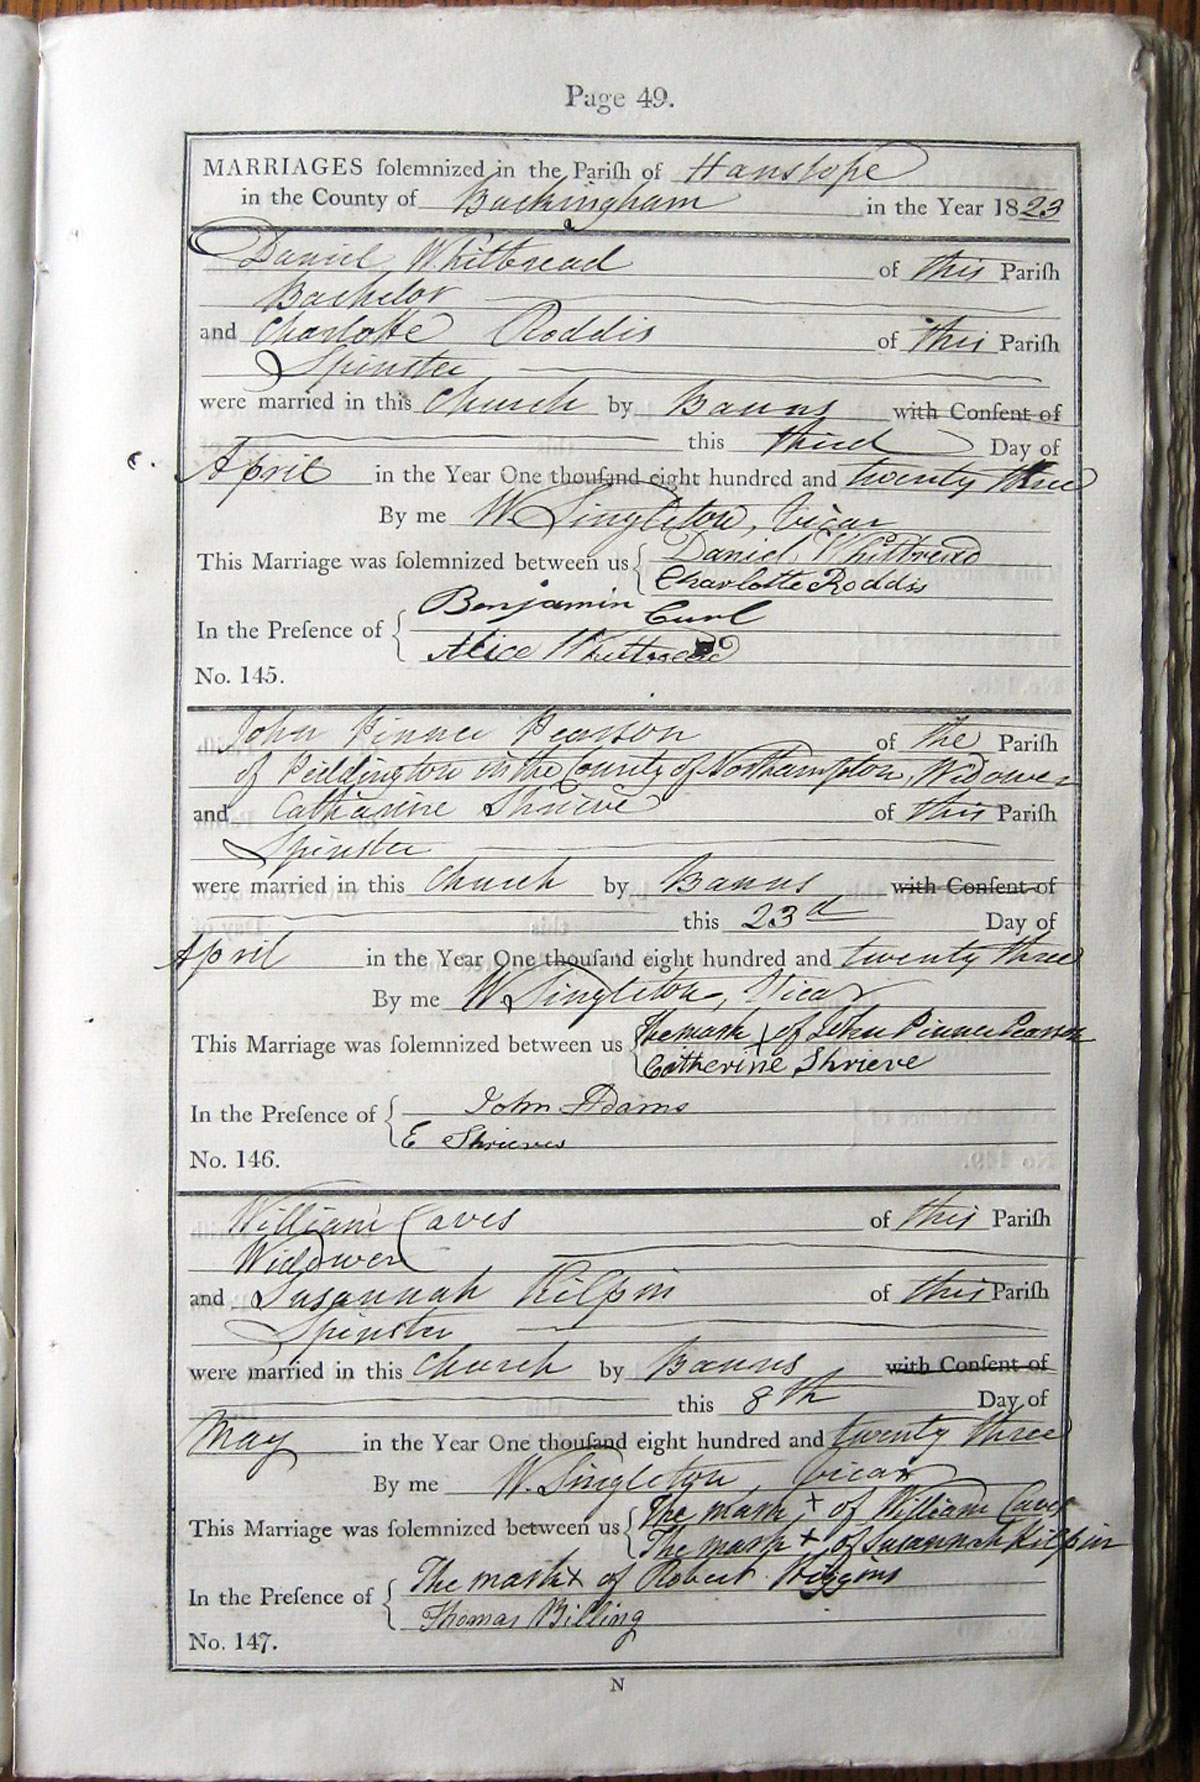 Page 49.
MARRIAGES ſolemnized in the Pariſh of Hanslope
in the County of Buckingham in the Year 1823
Daniel Whitbread of this Pariſh
Bachelor
and Charlotte Roddis of this Pariſh
Spinster
were married in this Church by Banns with Conſent of
this third Day of
April in the Year One thouſand eight hundred and twenty three
By me W. Singleton, Vicar
This Marriage was ſolemnized between us { Daniel Whitbread
Charlotte Roddis
In the Preſence of { Benjamin Curl
Alice Whitbread
No. 145.
John Pinner Pearson of the Pariſh
of Piddington in the County of Northampton, Widower
and Catharine Shrieve of this Pariſh
Spinster
were married in this Church by Banns with Conſent of
this 23d Day of
April in the Year One thouſand eight hundred and twenty three
By me W. Singleton, Vicar
This Marriage was ſolemnized between us { The mark + of John Pinner Pearson
Catherine Shrieve
In the Preſence of { John Adams
E Shrieves
No. 146.
William Caves of this Pariſh
Widower
and Susannah Kilpin of this Pariſh
Spinster
were married in this Church by Banns with Conſent of
this 8th Day of
May in the Year One thouſand eight hundred and twenty three
By me W. Singleton, Vicar
This Marriage was ſolemnized between us { The mark + of William Caves
The mark + of Susannah Kilpin
In the Preſence of { The mark + of Robert Higgins
Thomas Billing
No. 147.
N